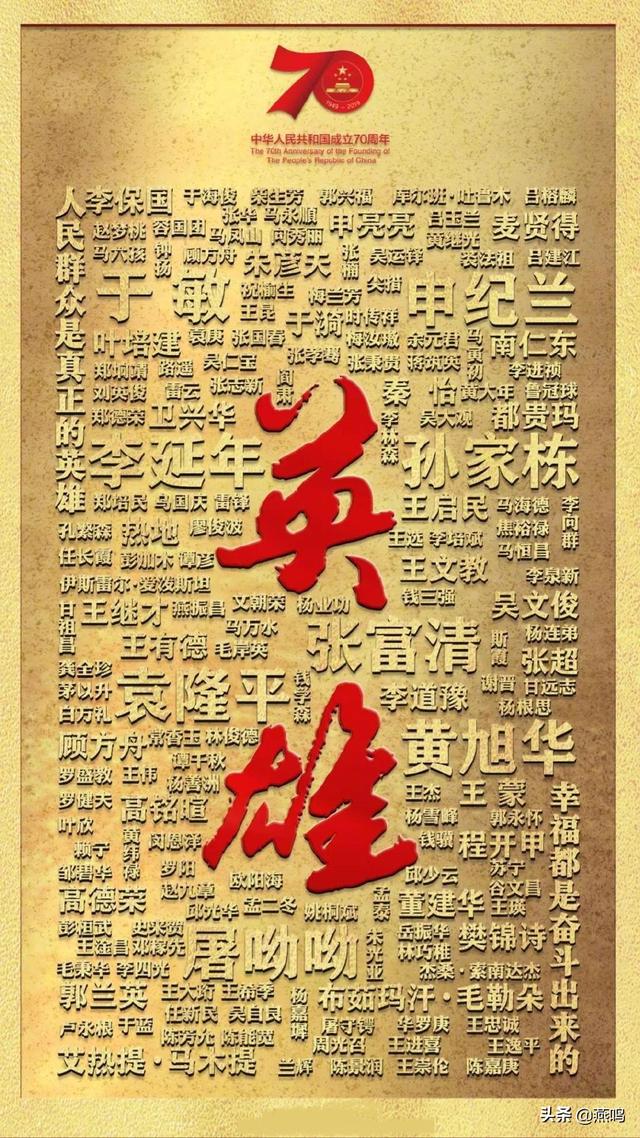 70
1949-2019
中华人民共和国成立70周年
The 70th Anniversary of the Founding of
The People's Republic of China
人民群众是真正的英雄
李保国 于海俊 柴生芳 郭兴福 库尔班·吐鲁木 吕榕麟
赵梦桃 容国团 张华 马永顺 申亮亮 吕玉兰 麦贤得
马六孩 钟扬 马凤山 向秀丽 黄继光
顾方舟 朱彦夫 张楠 吴运铎 裴法祖 吕建江
于敏 祝榆生 梅兰芳 尖措 申纪兰
王昆 于漪 时传祥
叶培建 袁庚 张国春 梅汝璈 余元君 马寅初 南仁东
郑垧靖 路遥 吴仁宝 张学骞 张秉贵 蒋筑英 李进祯
刘英俊 雷云 张志新 阎肃 秦怡 黄大年 鲁冠球
郑德荣 卫兴华 李林森 吴大观 都贵玛
英雄
李延年 孙家栋
郑培民 马国庆 雷锋 王启民 马海德 李向群
孔繁森 热地 廖俊波 王选 李培斌 焦裕禄
任长霞 彭加木 谭彦 王文教 马恒昌
伊斯雷尔·爱泼斯坦 李泉新
甘祖昌 王继才 燕振昌 文朝荣 杨业功 钱三强 吴文俊
王有德 马万水 毛岸英 张富清 斯霞 杨连弟
龚全珍 张超
茅以升 袁隆平 钱学森 李道豫 谢晋 甘远志
白方礼 杨根思
顾方舟 常香玉 林俊德 黄旭华
罗盛教 王伟 谭千秋
罗健夫 杨善洲 王杰 王蒙
叶欣 高铭暄 杨雪峰 郭永怀
赖宁 黄纬禄 闵恩泽 钱骥 程开甲
邹碧华 罗阳 邱少云 苏宁
高德荣 赵九章 欧阳海 孟泰 董建华 谷文昌
邱光华 孟二冬 姚桐斌 王瑛
彭桓武 史来贺 岳振华 樊锦诗
王淦昌 邓稼先 屠呦呦 朱光亚 林巧稚
毛秉华 李四光 杰桑·索南达杰
郭兰英 王大珩 王希季 杨嘉墀 布茹玛汗·毛勒朵
卢永根 于蓝 任新民 吴自良 屠守锷 华罗庚 王忠诚
陈芳允 陈能宽 周光召 王进喜 王逸平
艾热提·马木提 兰辉 陈景润 王崇伦 陈嘉庚
幸福都是奋斗出来的
头条 @燕鸣